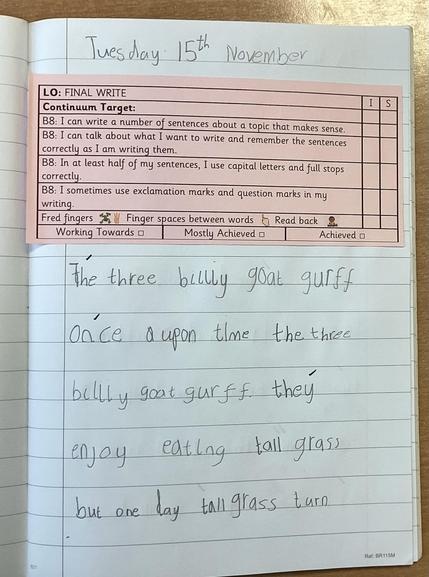 Tuesday 15th November
LO: FINAL WRITE
I S
Continuum Target:
B8: I can write a number of sentences about a topic that makes sense.
B8: I can talk about what I want to write and remember the sentences
correctly as I am writing them.
B8: In at least half of my sentences, I use capital letters and full stops
correctly.
B8: I sometimes use exclamation marks and question marks in my
writing.
Fred fingers Finger spaces between words Read back
Working Towards □ Mostly Achieved □ Achieved □
The three billly goat gurff
Once a upon time the three
billly goat gurff. they
enjoy eating tall grass
but one day tall grass turn
Ref: BR115M